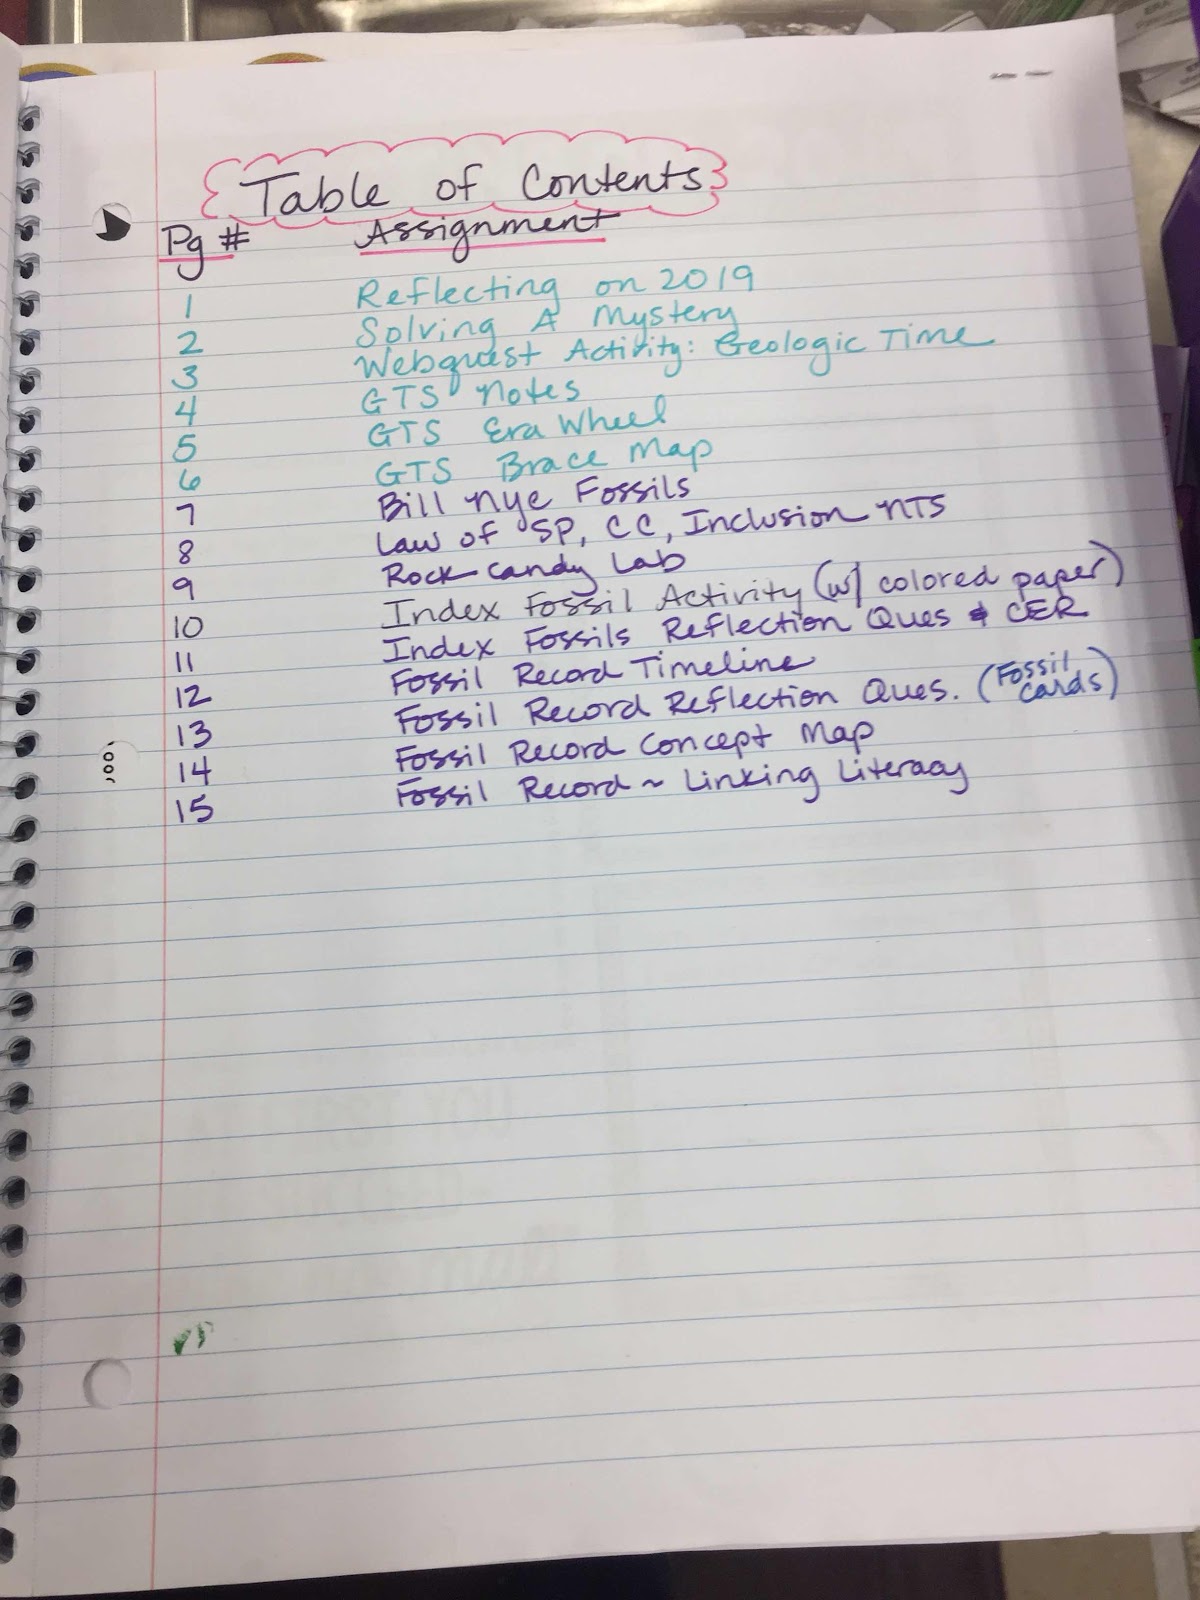 Table of Contents
Pg # Assignment
1 Reflecting on 2019
2 Solving A Mystery
3 Webquest Activity: Geologic Time
4 GTS Notes
5 GTS Era Wheel
6 GTS Brace Map
7 Bill Nye Fossils
8 Law of SP, CC, Inclusion NTS
9 Rock Candy Lab
10 Index Fossil Activity (w/ colored paper)
11 Index Fossils Reflection Ques & CER
12 Fossil Record Timeline
13 Fossil Record Reflection Ques. (Fossil cards)
14 Fossil Record Concept Map
15 Fossil Record ~ Linking Literacy